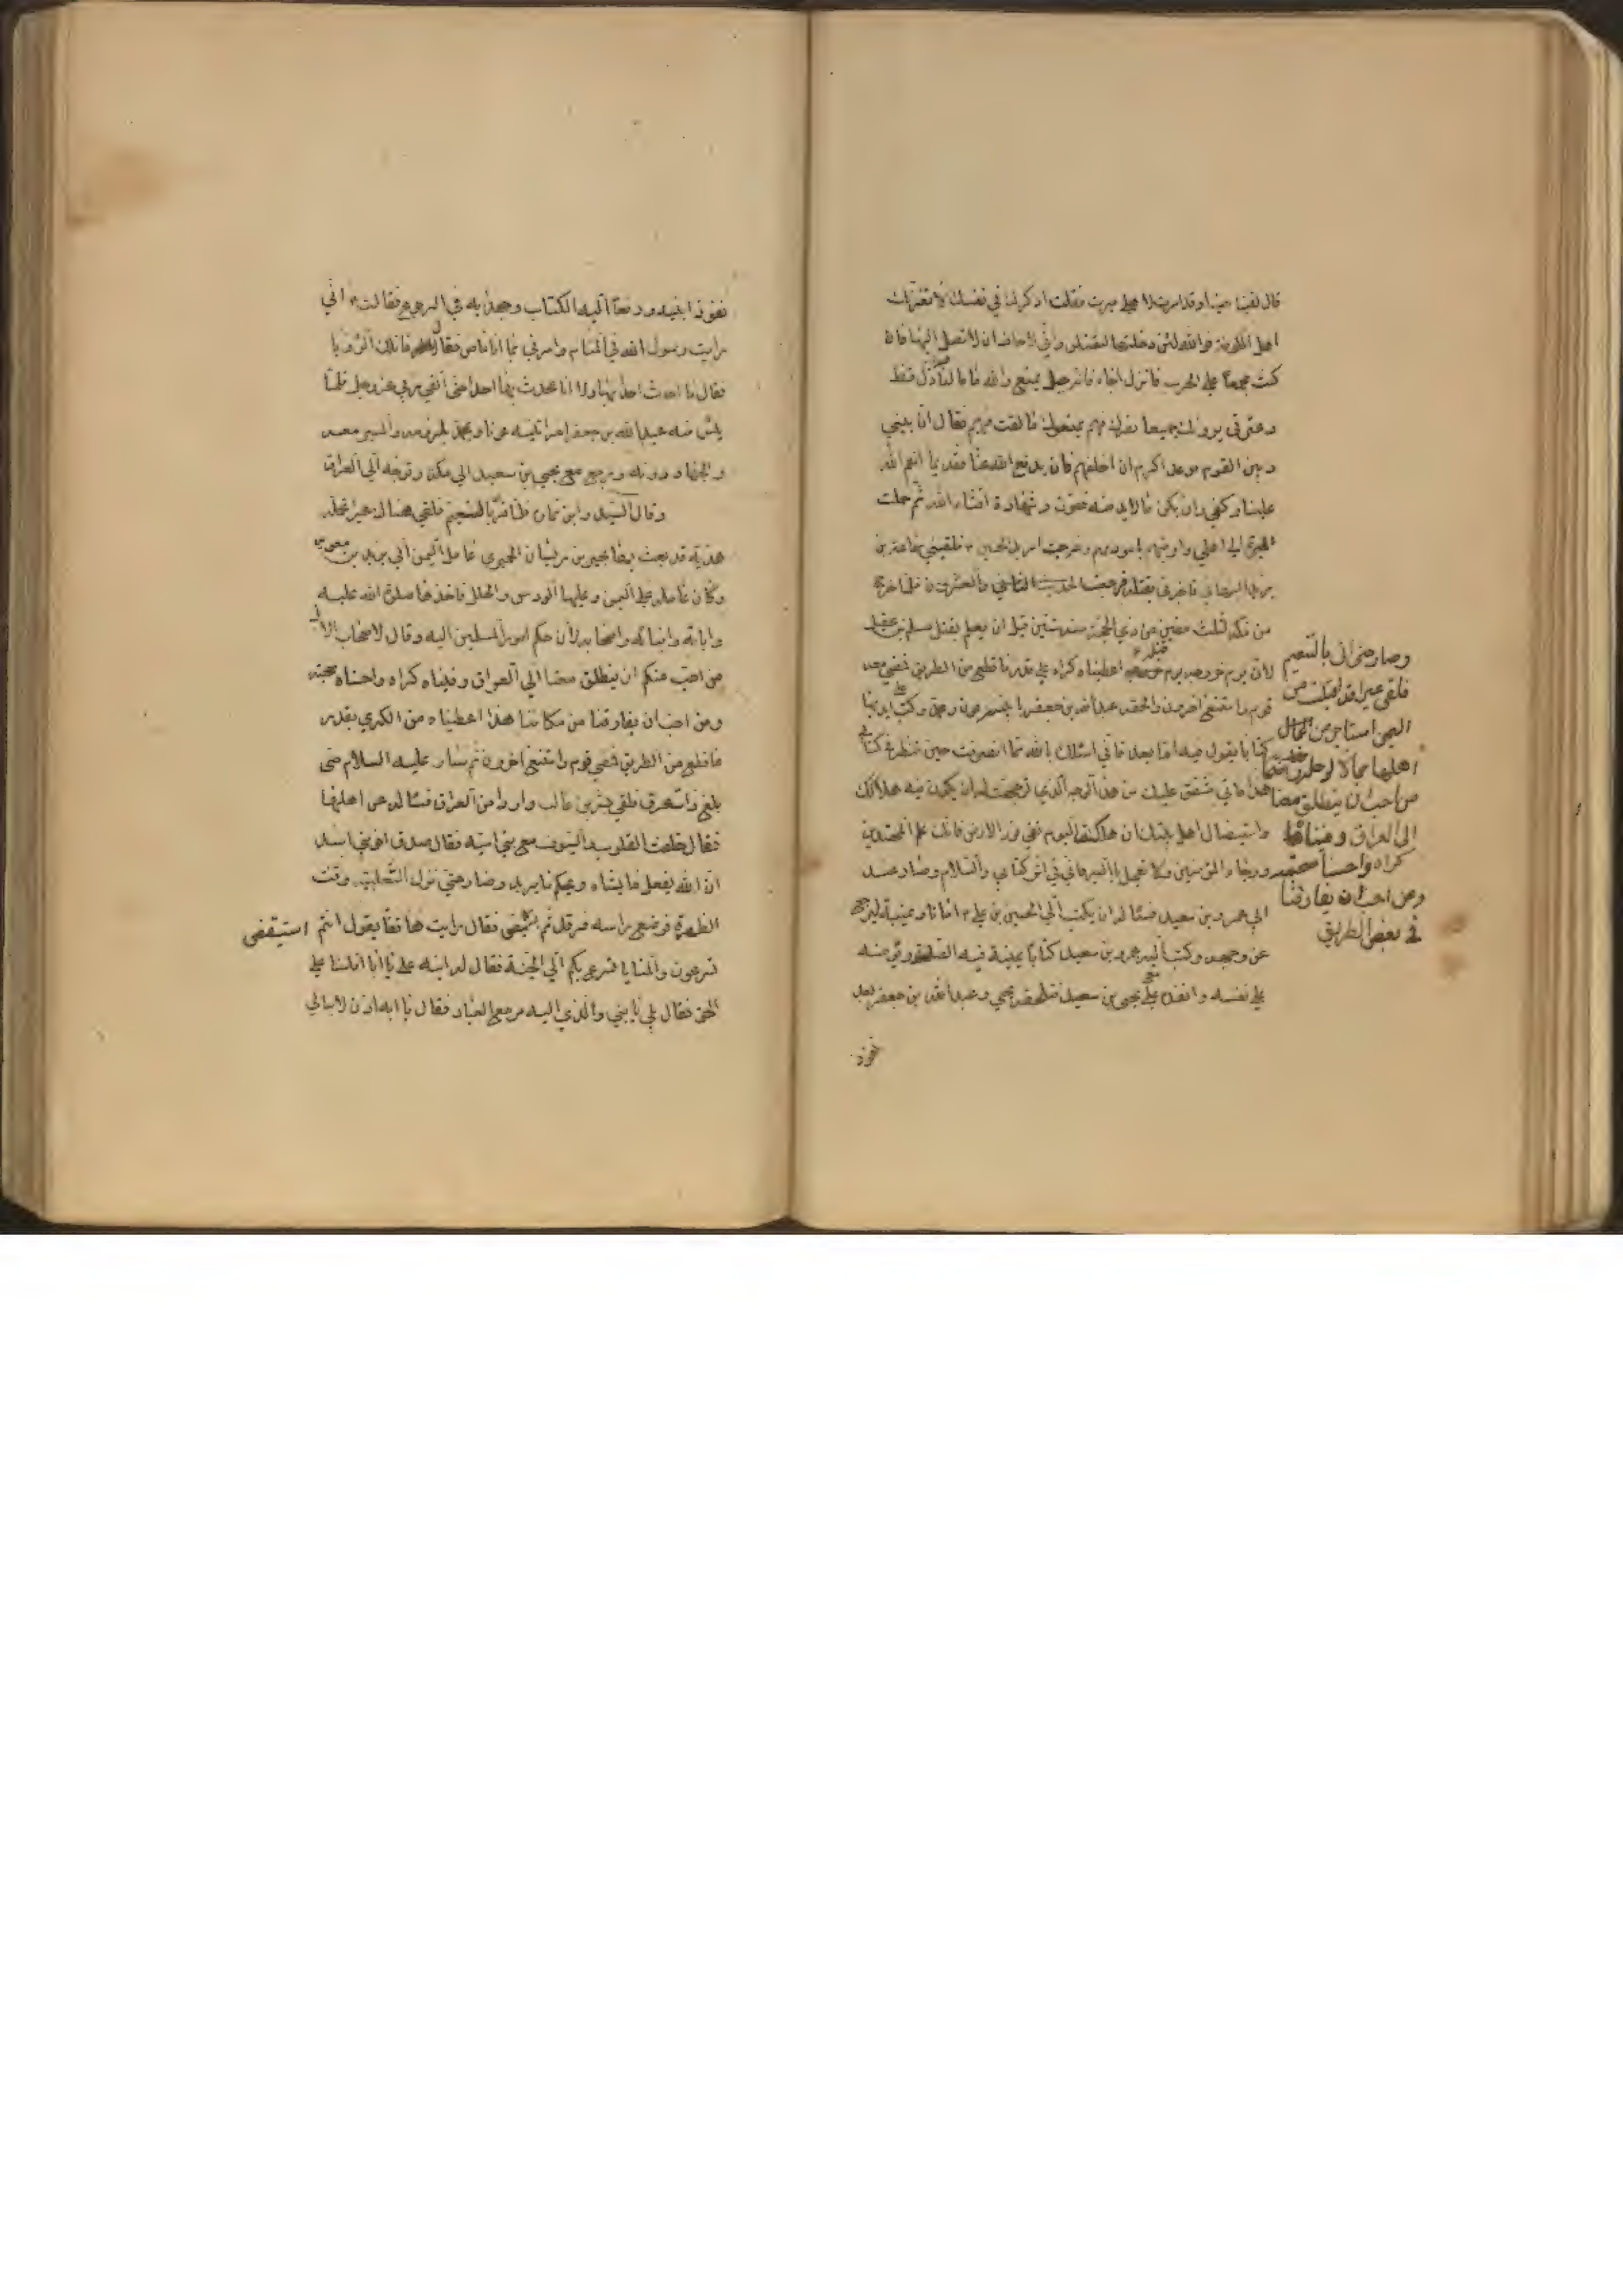 قال لقينا حينا وقد امرت لاهلي ميرت فقلت اذكرك في نفسك لا يغرنك
اهل الكوفة فوالله لئن دخلتها لتقتلن واني لاخاف ان لا تصل اليها فان
كنت مجمعا على الحرب فانزل اجاء فانه جبل منيع والله ما نالنا ذل قط
وعشيرتي يرون جميعا نصرك فهم يمنعونك ما اقمت فيهم فقال ان بيني
وبين القوم موعدا اكره ان اخلفهم فان يدفع الله عنا فقديما انعم الله
علينا وكفى وان يكن ما لابد منه ففوز وشهادة انشاء الله ثم حملت
الميرة الى اهلي واوصيتهم بامورهم وخرجت اريد الحسين ٤ فلقيني سماعة بن
يزيد النبهاني فاخبرني بقتله فرجعت الحديث الثامن والعشرون فلما خرج
من مكة لثلث مضين من ذي الحجة سنة ستين قبل ان يعلم بقتل مسلم بن عقيل
لان يوم خروجه يوم قتله اعطيناه كراه على قدر ما قطع من الطريق فمضى معه
قوم وامتنع اخرون والحقه عبد الله بن جعفر بابنيه عون ومحمد وكتب على ايديهما
كتابا يقول فيه اما بعد فاني اسئلك بالله لما انصرفت حين تنظر في كتابي
هذا فاني مشفق عليك من هذا الوجه الذي توجهت له ان يكون فيه هلاكك
واستيصال اهل بيتك ان هلكت اليوم طفي نور الارض فانك علم المهتدين
ورجاء المؤمنين ولا تعجل بالسير فاني في اثر كتابي والسلام وصار عبد
الى عمرو بن سعيد فسئاله ان يكتب الى الحسين بن علي ٤ امانا ويمنيه ليرجع
عن وجهه وكتب اليه عمرو بن سعيد كتابا يمنيه فيه الصلة ويؤمنه
على نفسه وانفذه مع يحيى بن سعيد فلحقه يحيى وعبد الله بن جعفر بعد
نفوذ
وصار حتى اتى بالتنعيم
فلقي عيرا قد اقبلت من
اليمن استاجر من الجمال
اهلها جمالا لرحله
من احب ان ينطلق معنا
الى العراق وفيناه
كراه واحسنا صحبته
ومن احب ان يفارقنا
في بعض الطريق
نفوذ ابنيه ودفعا اليه الكتاب وجهدا به في الرجوع فقال اني
رايت رسول الله في المنام وامرني بما انا ماض فقالا له فما تلك الرؤيا
فقال ما احدث احدا بها ولا انا محدث بها احدا حتى القى ربي عز وجل فلما
يئس منه عبد الله بن جعفر امر ابنيه عونا ومحمدا بلزومه والمسير معه
والجهاد دونه ورجع مع يحيى بن سعيد الى مكة وتوجه الى العراق
وقال السيد وابن نما بالتنعيم فلقي هناك عيرا تحمل
هدية قد بعث بها بحير بن ريسان الحميري عامل اليمن الى يزيد بن معوية
وكان عامله على اليمن وعليها الورس والحلل فاخذها صلوة الله عليه
وابائه وابنائه واصحابه لان حكم امور المسلمين اليه وقال لاصحاب الابل
من احب منكم ان ينطلق معنا الى العراق وفيناه كراه واحسناه صحبته
ومن احب ان يفارقنا من مكاننا هذا اعطيناه من الكرى بقدر
ما قطع من الطريق فمضى قوم وامتنع اخرون ثم سار عليه السلام حتى
بلغ ذات عرق فلقي بشر بن غالب واردا من العراق فسئاله عن اهلها
فقال خلفت القلوب معك والسيوف مع بني امية فقال صدق اخو بني اسد
ان الله يفعل ما يشاء ويحكم ما يريد وصار حتى نزل الثعلبية وقت
الظهيرة فوضع راسه فرقد ثم استيقض فقال رايت هاتفا يقول انتم
استيقض
تسرعون والمنايا تسرع بكم الى الجنة فقال له ابنه علي يا ابا افلسنا على
الحق فقال بلى يا بني والذي اليه مرجع العباد فقال يا ابه اذن لا نبالي